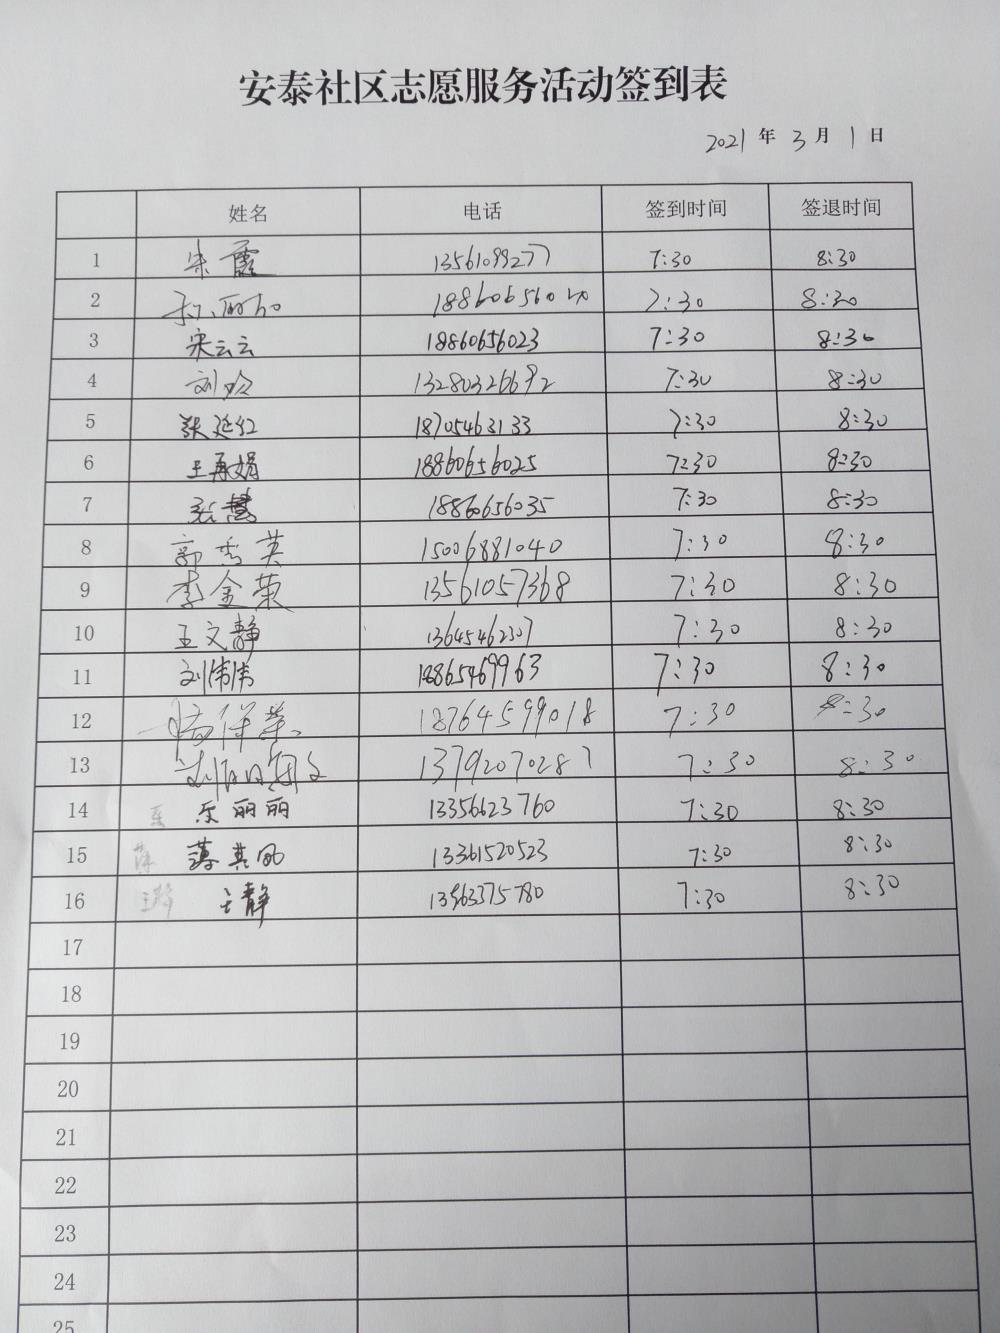 安泰社区志愿服务活动签到表
2021 年 3 月 1 日
姓名 电话 签到时间 签退时间
1 宋霞 13561099277 7:30 8:30
2 188606560 7:30 8:30
3 宋云云 18860656023 7:30 8:30
4 刘玲 13280326692 7:30 8:30
5 张延红 18705463133 7:30 8:30
6 王再娟 18860656025 7:30 8:30
7 张慧 18860656035 7:30 8:30
8 郭秀英 15006881040 7:30 8:30
9 李金荣 13561057368 7:30 8:30
10 王文静 13645462307 7:30 8:30
11 刘伟伟 18865469963 7:30 8:30
12 18764599018 7:30 8:30
13 13792070287 7:30 8:30
14 乐丽丽 13356623760 7:30 8:30
15 薄其凤 13361520523 7:30 8:30
16 王静 13963375780 7:30 8:30
17
18
19
20
21
22
23
24
25